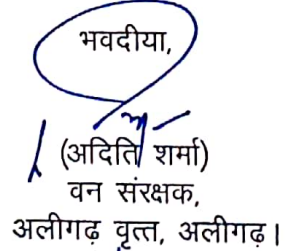 भवदीया,
(अदिति शर्मा)
वन संरक्षक,
अलीगढ़ वृत्त, अलीगढ़।